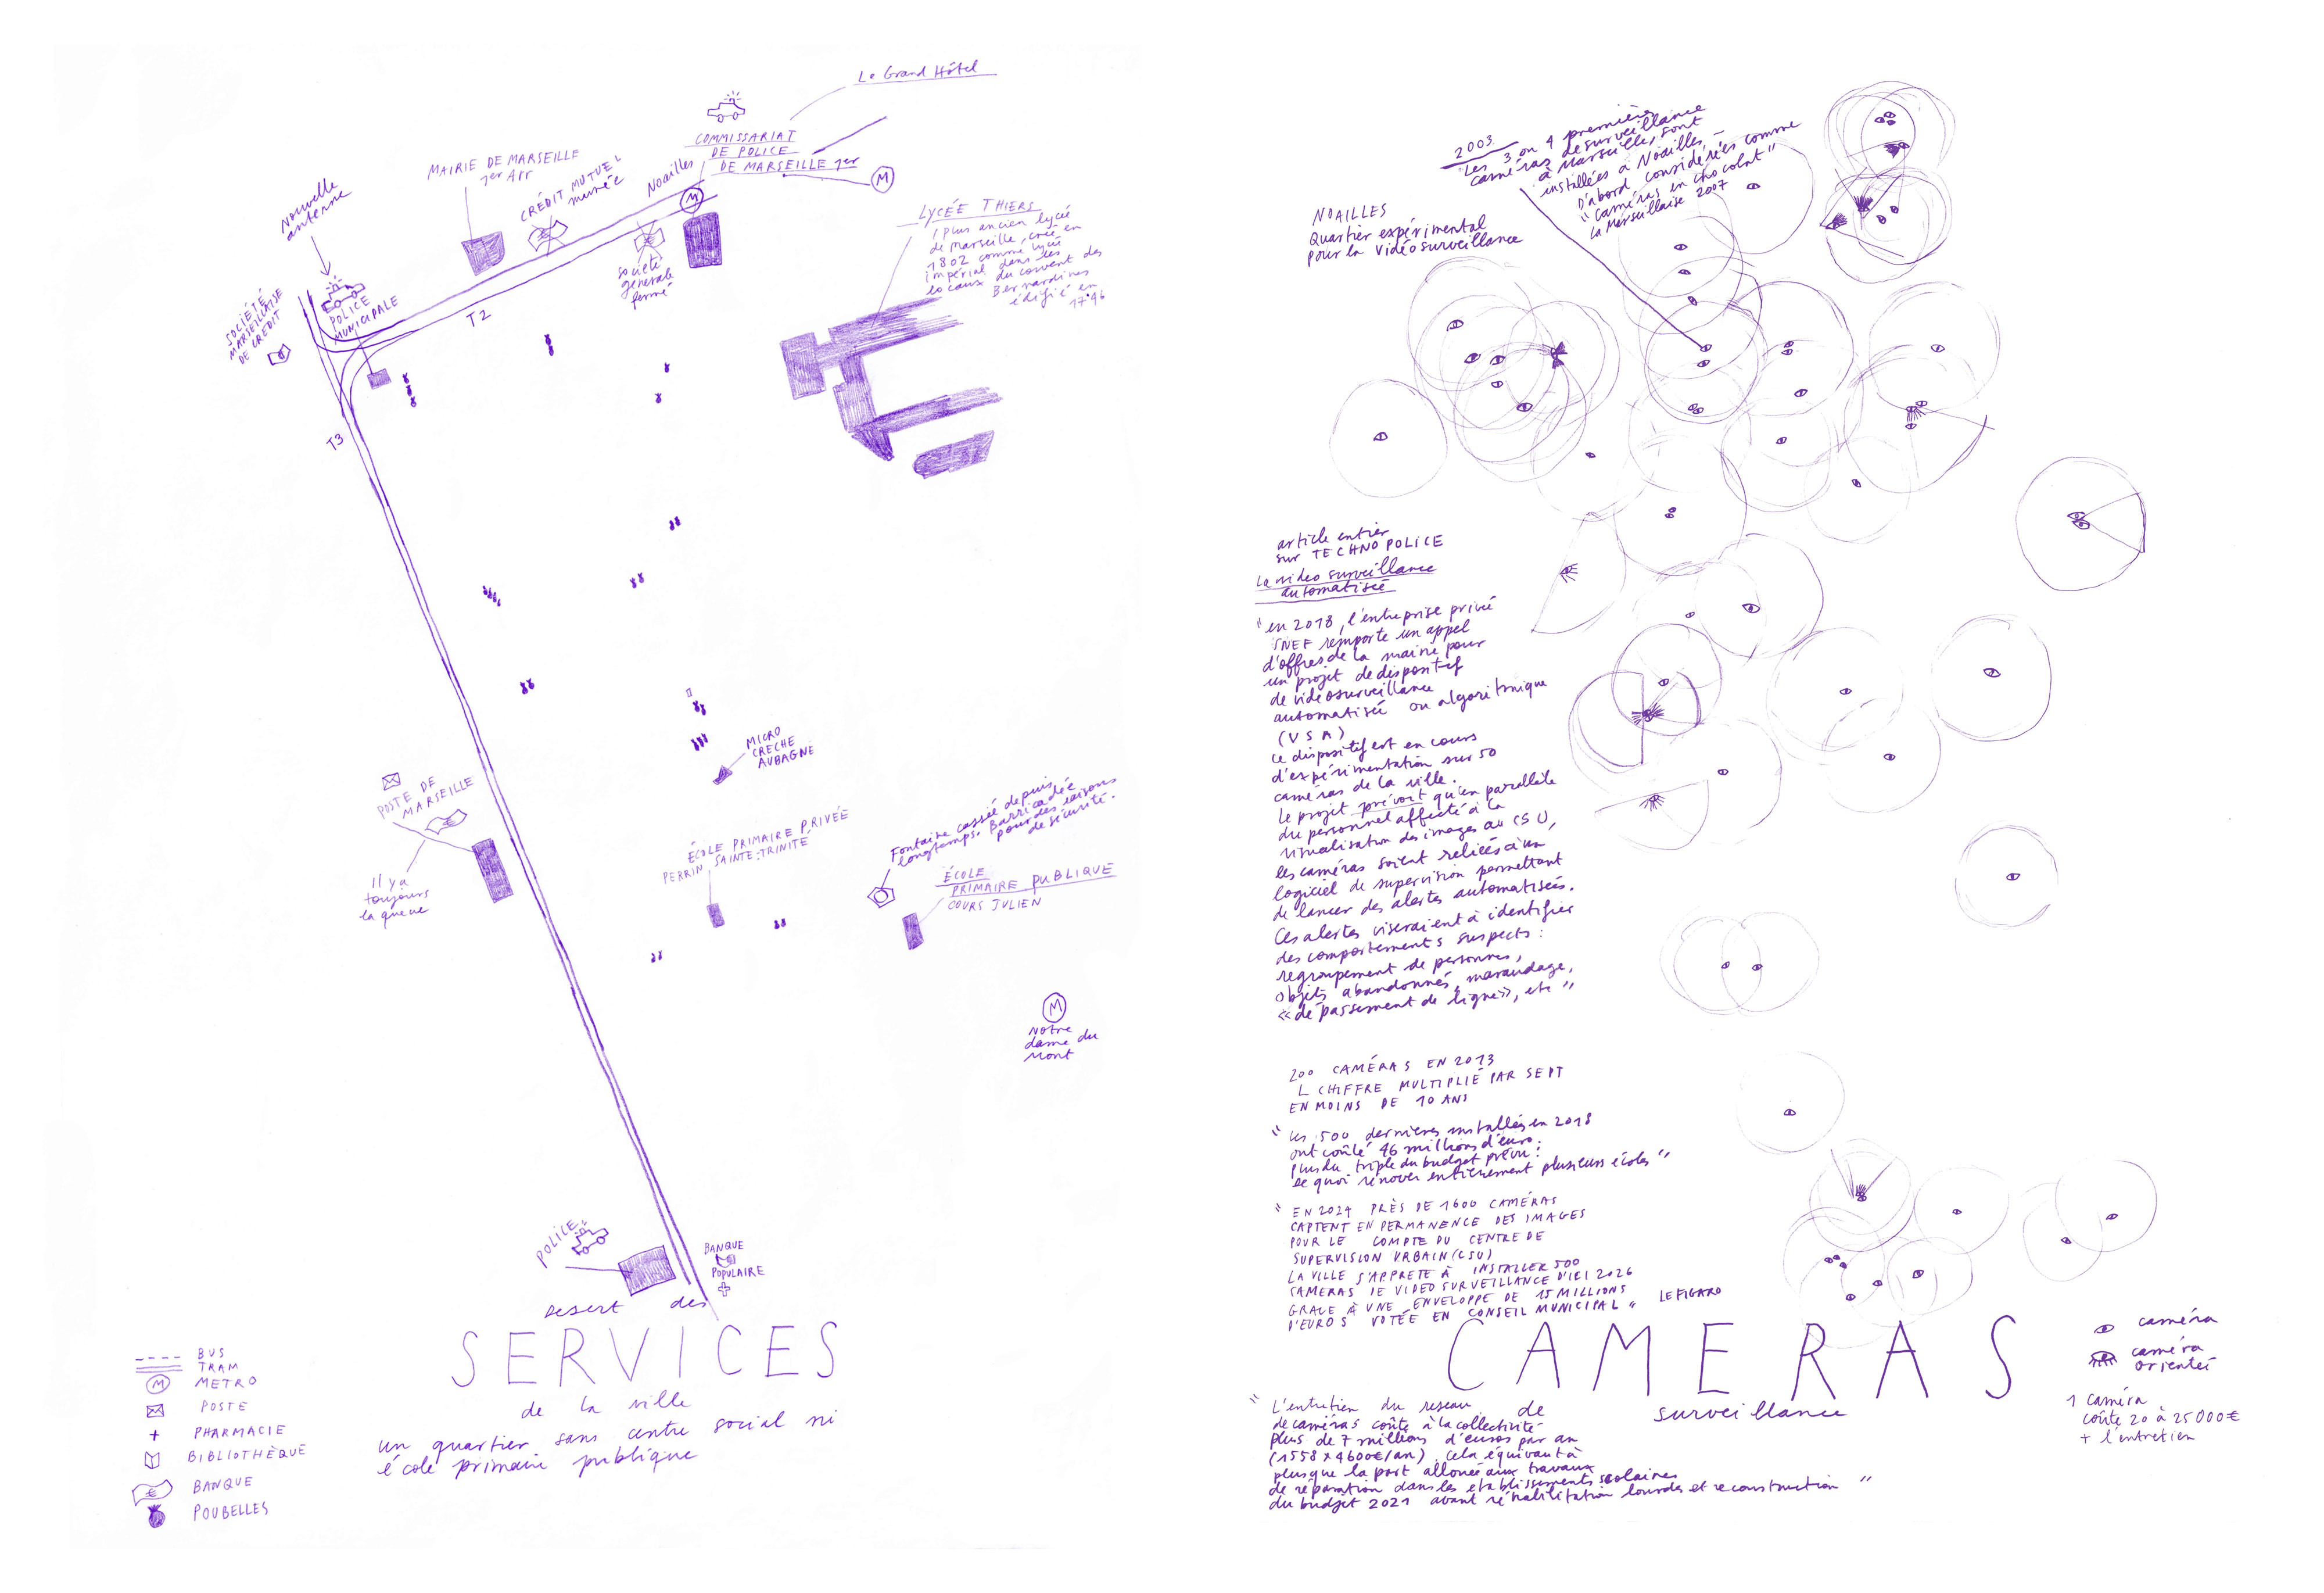 Le Grand Hôtel
COMMISSARIAT
DE POLICE
DE MARSEILLE 1er
M
Noailles
M
MAIRIE DE MARSEILLE
1er Arr
CRÉDIT MUTUEL
murée
société
générale
fermé
Nouvelle
antenne
POLICE
MUNICIPALE
SOCIÉTÉ
MARSEILLAISE
DE CRÉDIT
T2
T3
LYCÉE THIERS
(plus ancien lycée
de Marseille, créé en
1802 comme lycée
impérial dans les
locaux du couvent des
Bernardines
édifié en
1746
MICRO
CRECHE
AUBAGNE
POSTE DE
MARSEILLE
Il y a
toujours
la queue
ÉCOLE PRIMAIRE PRIVÉE
PERRIN SAINTE-TRINITÉ
Fontaine cassée depuis
longtemps. Barricadée
pour des raisons
de sécurité.
ÉCOLE
PRIMAIRE PUBLIQUE
COURS JULIEN
M
Notre
dame du
Mont
POLICE
BANQUE
POPULAIRE
Desert des
SERVICES
de la ville
un quartier sans centre social ni
école primaire publique
BUS
TRAM
M METRO
POSTE
PHARMACIE
BIBLIOTHÈQUE
BANQUE
POUBELLES
2003
Les 3 ou 4 première
caméras de surveillance
à Marseille, sont
installées à Noailles,
D'abord considérées comme
"caméras en chocolat"
La Marseillaise 2007
NOAILLES
Quartier expérimental
pour la vidéosurveillance
article entier
sur TECHNOPOLICE
La video surveillance
automatisée
"en 2018, l'entreprise privée
SNEF remporte un appel
d'offres de la mairie pour
un projet de dispositif
de vidéosurveillance
automatisée ou algorithmique
(VSA)
ce dispositif est en cours
d'expérimentation sur 50
caméras de la ville.
Le projet prévoit qu'en parallèle
du personnel affecté à la
visualisation des images au CSU,
les caméras soient reliées à un
logiciel de supervision permettant
de lancer des alertes automatisées.
Ces alertes viseraient à identifier
des comportements suspects:
regroupement de personnes,
objets abandonnés, maraudage,
«dépassement de ligne», etc"
200 CAMÉRAS EN 2013
L CHIFFRE MULTIPLIÉ PAR SEPT
EN MOINS DE 10 ANS
"Les 500 dernières installées en 2018
ont coûté 46 millions d'euro:
plus du triple du budget prévu!
de quoi rénover entièrement plusieurs écoles"
"EN 2024 PRÈS DE 1600 CAMÉRAS
CAPTENT EN PERMANENCE DES IMAGES
POUR LE COMPTE DU CENTRE DE
SUPERVISION URBAIN (CSU)
LA VILLE S'APPRETE À INSTALLER 500
CAMERAS DE VIDEOSURVEILLANCE D'ICI 2026
GRACE À UNE ENVELOPPE DE 15 MILLIONS
D'EUROS VOTÉE EN CONSEIL MUNICIPAL" LE FIGARO
CAMERAS
de
surveillance
"L'entretien du reseau
de caméras coûte à la collectivité
plus de 7 millions d'euros par an
(1558 x 4600€/an). Cela équivaut à
plus que la part allouée aux travaux
de réparation dans les établissements scolaires
du budget 2021 avant réhabilitation lourdes et reconstruction"
caméra
caméra
orientée
1 caméra
coûte 20 à 25 000€
+ l'entretien